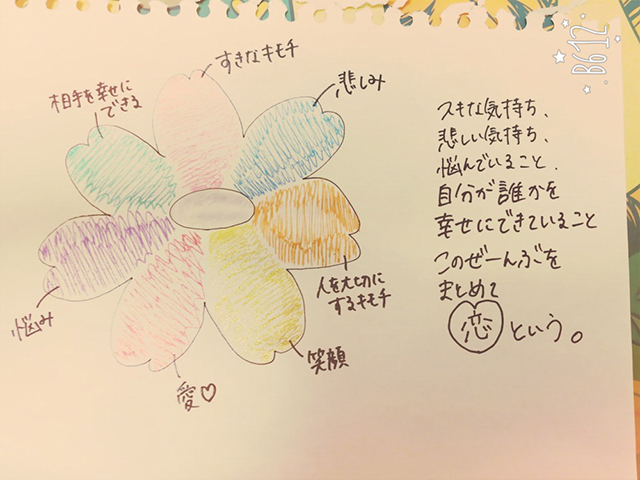 すきなキモチ
悲しみ
人を大切に
するキモチ
笑顔
愛♡
悩み
相手を幸せに
できる
スキな気持ち、
悲しい気持ち、
悩んでいること、
自分が誰かを
幸せにできていること
このぜーんぶを
まとめて
恋という。
B612